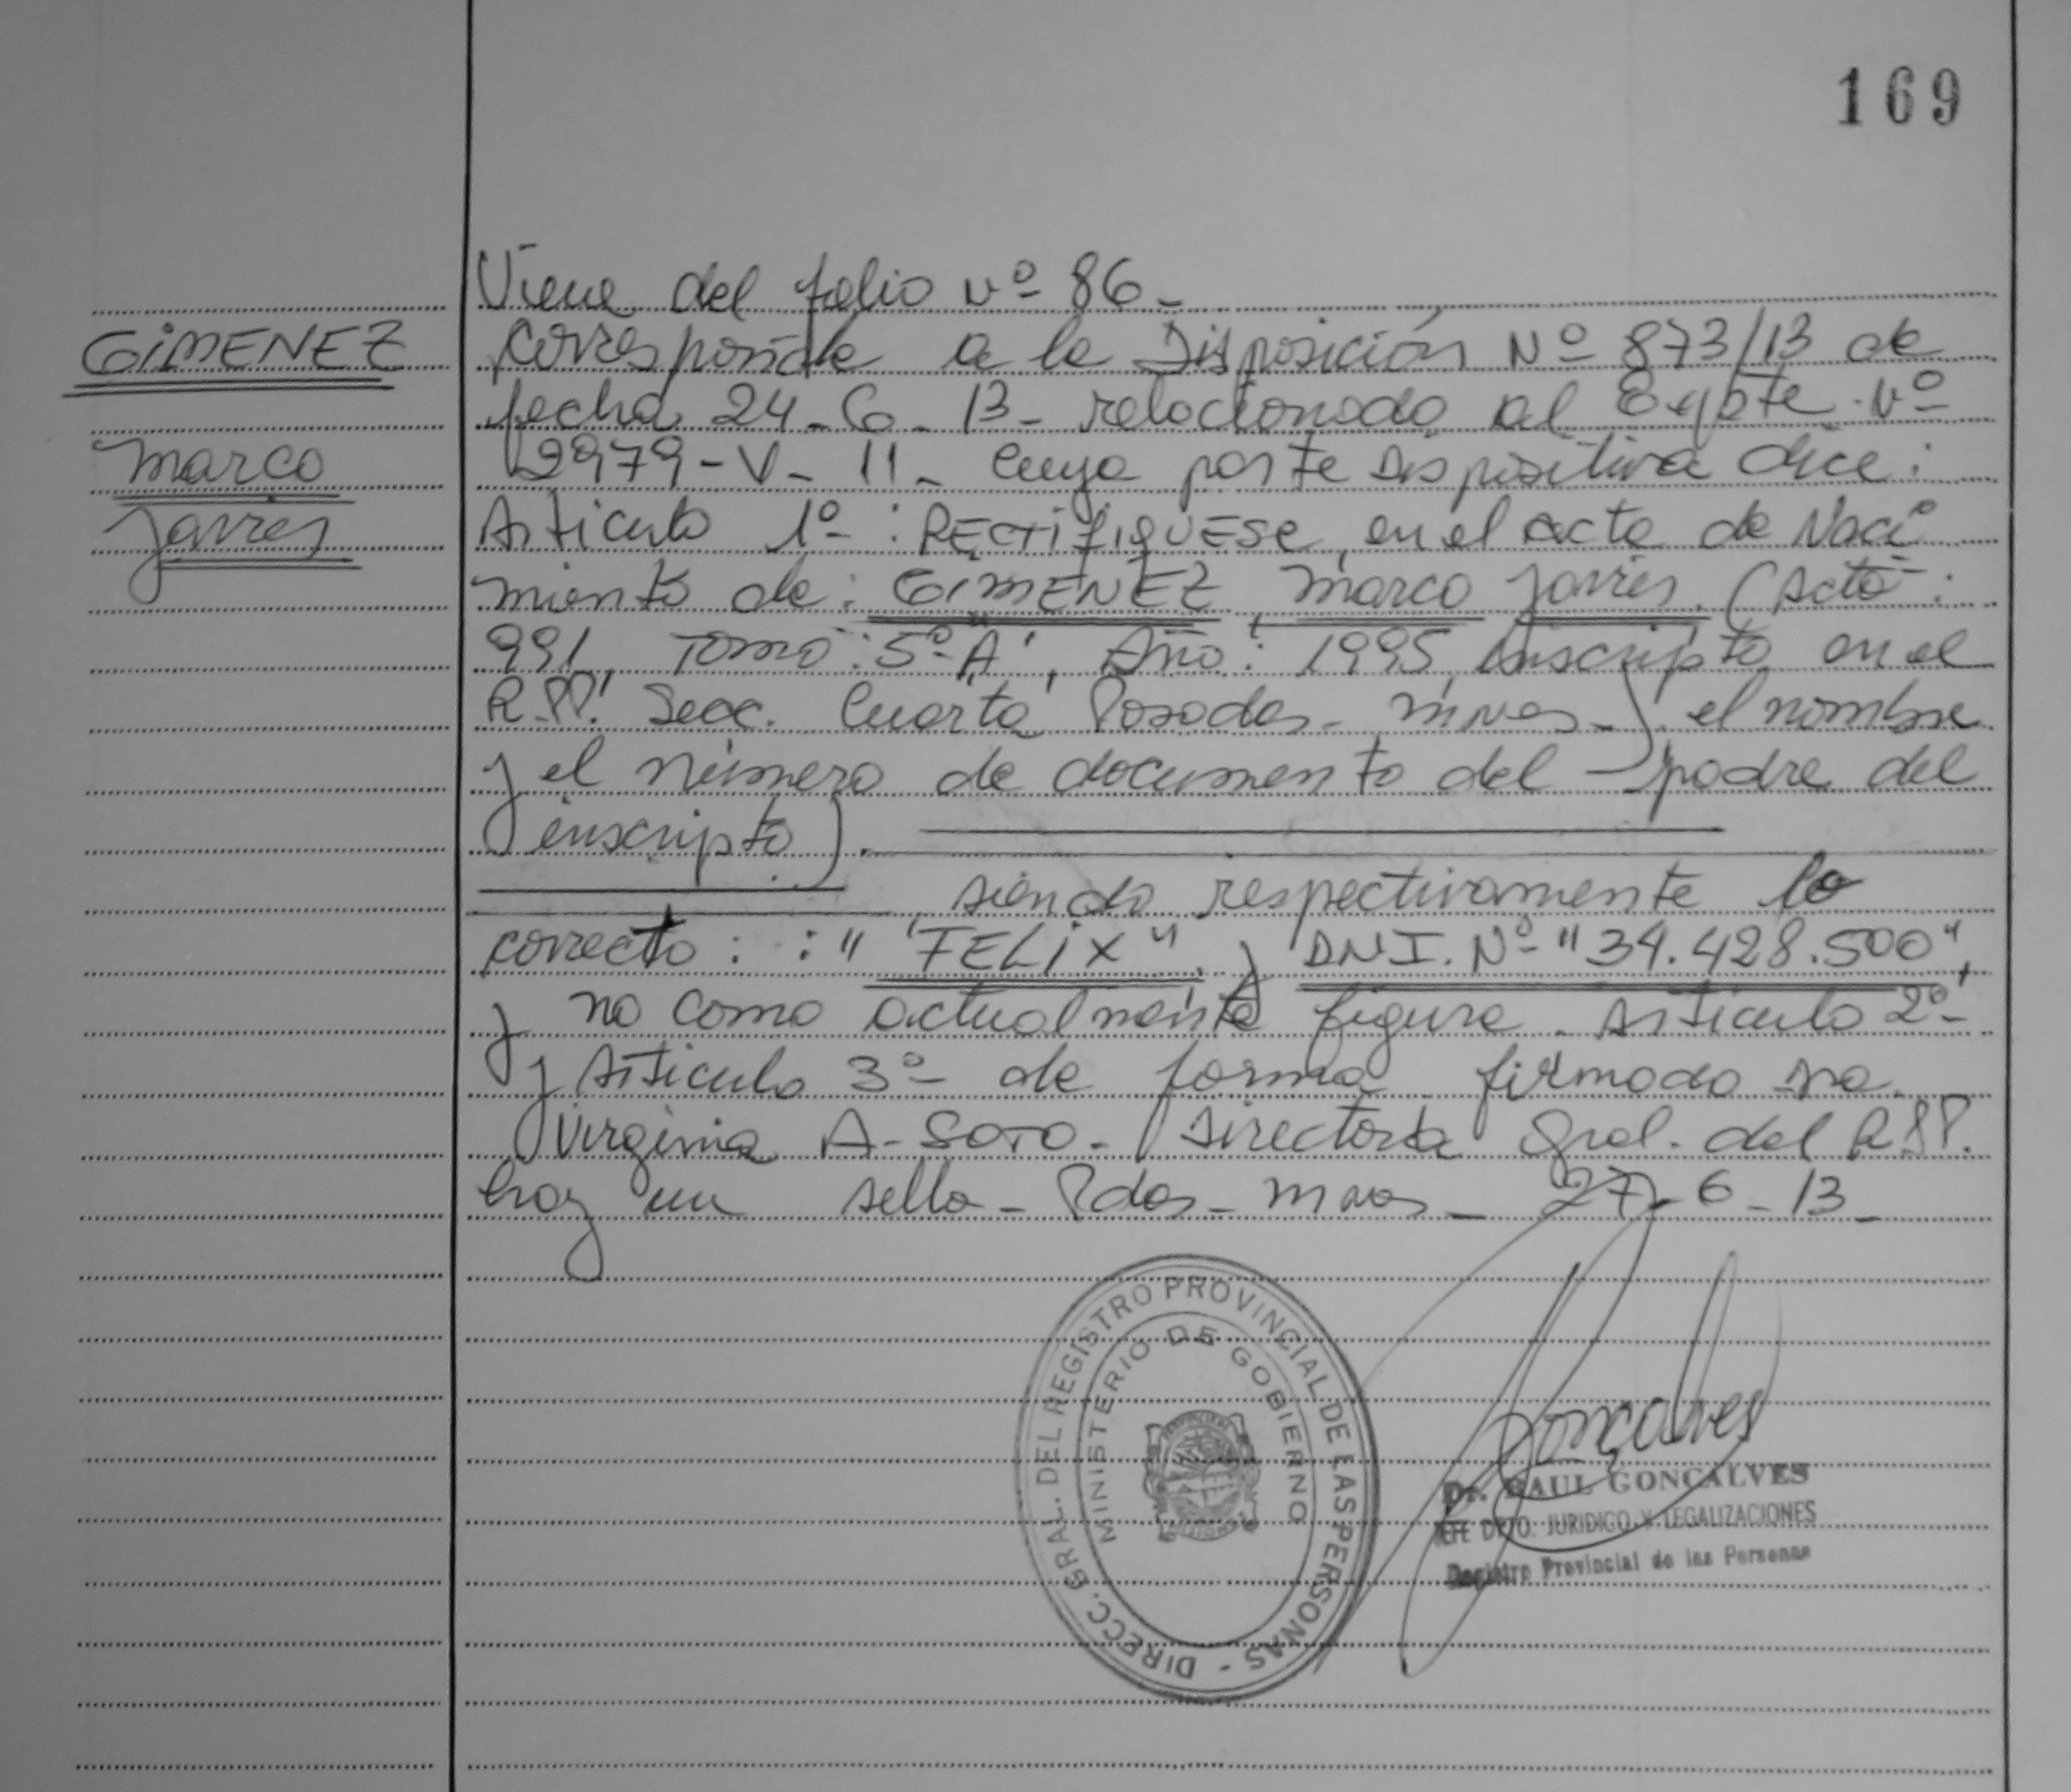 169
Viene del folio Nº 86 -
GIMENEZ
Marco
Javier
corresponde a la Disposición Nº 873/13 de
fecha 24-6-13- relacionado al Expte. Nº
2979-V-11- cuya parte dispositiva dice:
Articulo 1º: RECTIFIQUESE, en el acta de Naci
miento de: GIMENEZ, Marco Javier. (Acta:
991, Tomo: 5º "A", Año: 1995, inscripto en el
R.P.P. Secc. Cuarta Posadas - Mnes -) el nombre
y el número de documento del padre del
inscripto).
siendo respectivamente lo
correcto: : " FELIX" y DNI. Nº "34.428.500",
y no como actualmente figura. Articulo 2º-
y Articulo 3º- de forma firmado Sra.
Virginia A. SOTO - Directora Gral. del R.P.P.
hay un sello - Pdas - Mnes - 27-6-13-
DIRECC. GRAL. DEL REGISTRO PROVINCIAL DE LAS PERSONAS -
MINISTERIO DE GOBIERNO
Goncalves
Dr. RAUL GONCALVES
JEFE DPTO. JURIDICO Y LEGALIZACIONES
Registro Provincial de las Personas